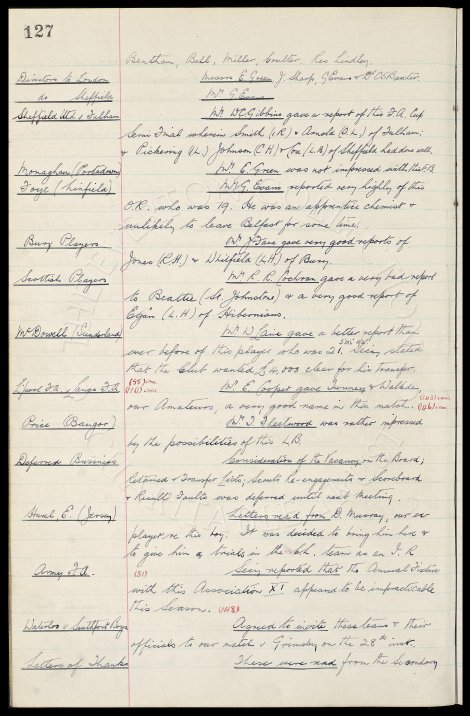 127
Bentham, Bell, Miller, Coulter. Res Lindley.
Directors to London Messrs E. Green, J. Sharp, G. Evans & Dr C.S. Baxter.
do Sheffield Mr G. Evans
Sheffield Utd v Fulham Mr W.C. Gibbins gave a report of this F.A. Cup
Semi Final wherein Smith (I.R.) & Arnold (O.L.) of Fulham;
& Pickering (I.L.) Johnson (C.H.) & Cox (L.B.) of Sheffield had done well.
Monaghan (Portadown) Mr E. Green was not impressed with this F.B.
Foye (Linfield) Mr G. Evans reported very highly of this
O.R. who was 19. He was an apprentice chemist &
unlikely to leave Belfast for some time.
Bury Players Mr J. Fare gave very good reports of
Jones (R.H.) & Whitfield (L.H.) of Bury.
Scottish Players Mr R.R. Cochran gave a very bad report
to Beattie (St. Johnstone) & a very good report of
Egan (L.H.) of Hibernians.
McDowell (Sunderland) Mr W Lane gave a better report than
ever before of this player who was 21. 5'10" 11st. Secy. stated
that the Club wanted £4,000 clear for his transfer.
Lpool F.A. v Lancs F.A. Mr E. Cooper gave Twomey & Walkden,
our Amateurs, a very good name in this match.
Price (Bangor) Mr T. Fleetwood was rather impressed
by the possibilities of this LB.
Deferred Business Consideration of the Vacancy on the Board;
Retained & Transfer Lists; Scouts Re-engagements & Scoreboard
& Result Faults was deferred until next Meeting.
E. (Jersey) Letters read from D. Murray, our ex
player re this boy. It was decided to bring him here &
to give him a trial in the team as an I.R.
Army F.A. (31) Secy. reported that the Annual Fixture
with this Association XI appeared to be impracticable
this season.
Waterloo v Southport Boys Agreed to invite these teams & their
officials to our match v Grimsby on the 28th inst.
Letters of Thanks These were read from the Secondary